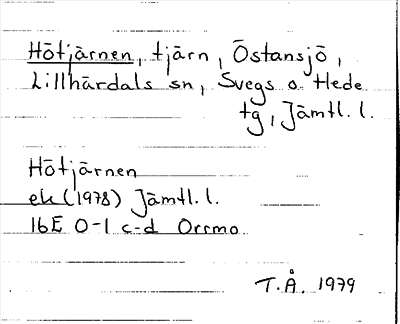 Hötjärnen, tjärn, Östansjö,
Lillhärdals sn, Svegs o. Hede
tg, Jämtl. l.
Hötjärnen
ek (1978) Jämtl. l.
16E 0-1 c-d Orrmo
T.Å. 1979